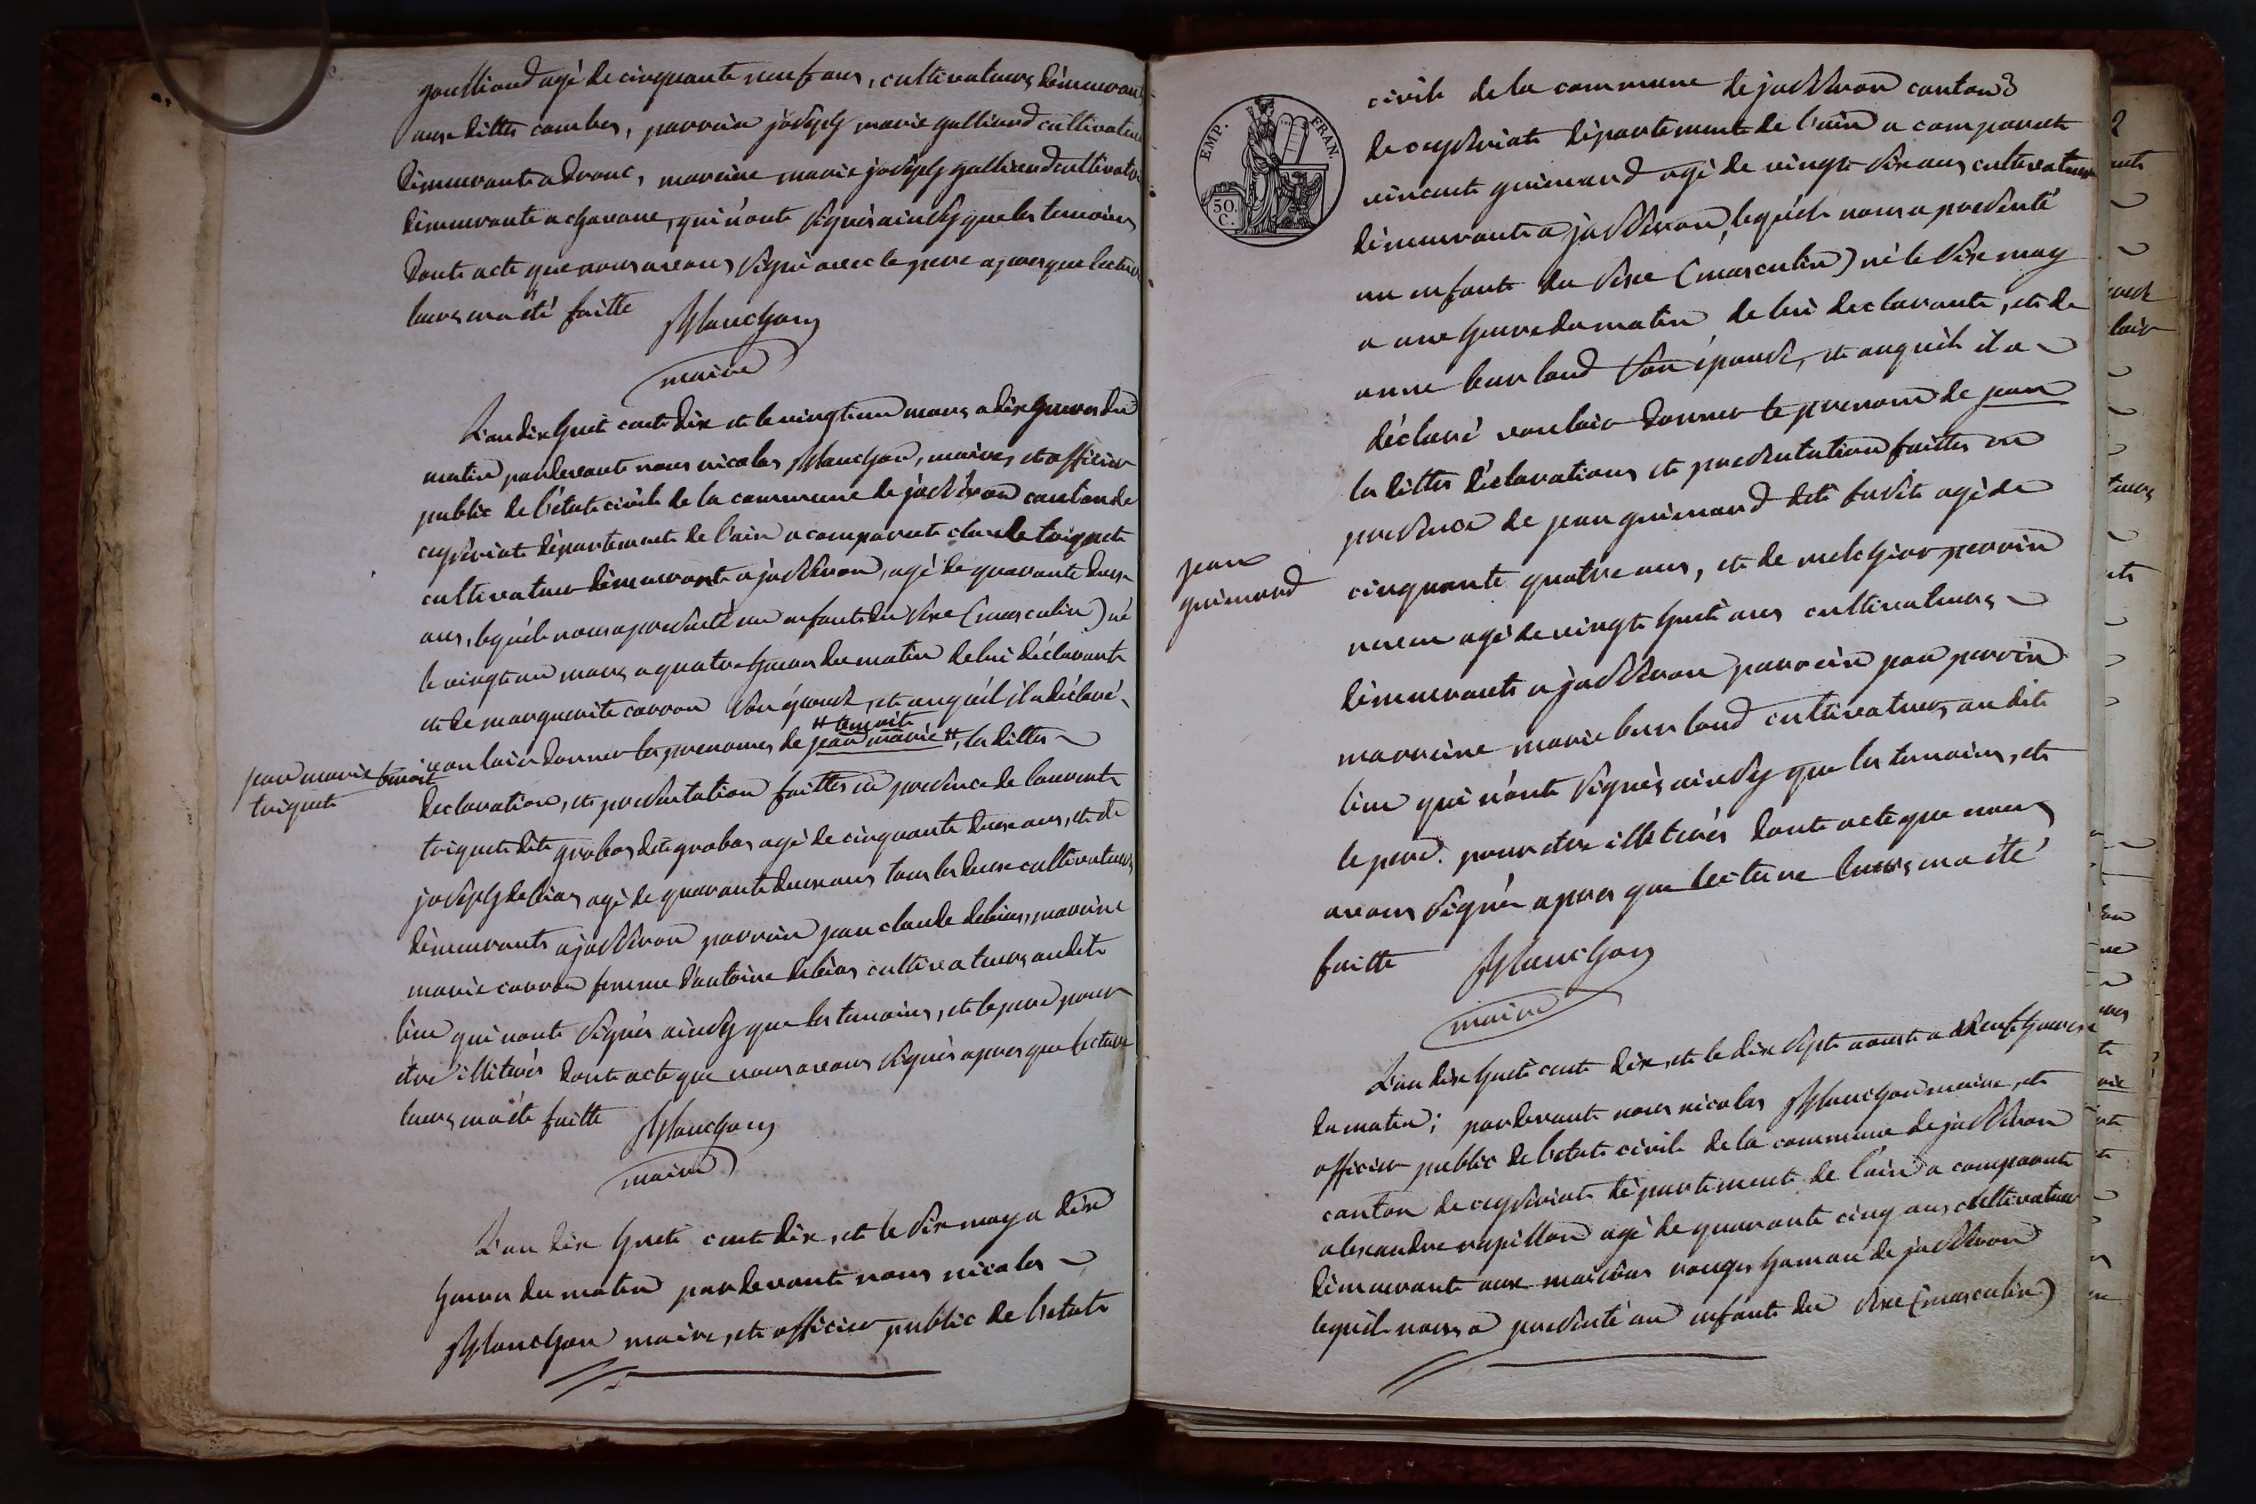 goulliand agé de cinquante neuf ans, cultivateurs démeurant
aux dittes combes, parrain joseph marie galliand cultivateur
démeurante a drom, mareine marie joseph galliand cultivatr
démeurante a chavane, qui n'onte signés ainsÿ que les temoins
donte acte que nous avons signé avec le pere apres que lecture
leurs en a été faitte
Planchon
maire
L'an dix huit cente dix et le vingt un mars a dix heures du
matin pardevante nous nicolas Planchon, maire, et officier
public de l'état civile de la commune de jasseron canton de
ceyseriat département de l'ain a comparute claude toiquete
cultivateur démeurante a jasseron, agé de quarante deux
ans, lequéle nous a presenté un enfante du sexe (masculin) né
le vingt un mars a quatre heures du matin de lui déclarante
et de marguerite carron son épouse, et auquéil il a déclaré
# benoit
vouloir donner les prenoms de jean marie #, les dittes
jean marie benoit
toiquete
declaration, et presentation faittes en presence de laurente
toiquete dite grobas dite grobas agé de cinquante deux ans, et de
joseph debias agé de quarante deux ans tous les deux cultivateurs
démeurants a jasseron parrain jean claude debias, mareine
marie carron femme d'antoine debias cultivateurs au dite
lieu qui nonte signés ainsÿ que les temoins, et le pere pour
être illiterés donte acte que nous avons signés apres que lecture
leurs en a été faitte
Planchon
maire
L'an dix huit cente dix, et le six may a dix
heures du matin pardevante nous nicolas
Planchon maire, et officier public de l'etate
EMP. FRAN.
50 C.
civile de la commune de jasseron canton
de ceyseriate département de l'ain a comparute
vincente guimand agé de vingte six ans cultivateur
démeurante a jasseron, lequéle nous a presenté
un enfante du sexe (masculin) né le six may
a une heure du matin de lui declarante, et de
anne bur land son épouse, et auquéle il a
déclaré vouloir donner le prenom de jean
les dittes déclarations et presentation faittes en
presence de jean guimand dite agé de
jean
guimand
cinquante quatre ans, et de melchior perrin
neveu agé de vingte huit ans cultivateurs
démeurants a jasseron parrein jean perrin
marreine marie bur land cultivateurs au dite
lieu qui n'onte signés ainsÿ que les temoins, et
le pere pour etre illeterés donte acte que nous
avons signés apres que lecture leurs en a été
faitte
Planchon
maire
L'an dix huit cente dix, et le dix septe aouste a neuf heures
du matin; pardevante nous nicolas Planchon maire, et
officier public de l'etate civile de la commune de jasseron
canton de ceyseriate département de l'ain a comparute
alexandre rapillon agé de quarante cinq ans cultivateur
démeurante aux maisons rouges hamau de jasseron
lequéle nous a presenté un enfante du sexe (masculin)